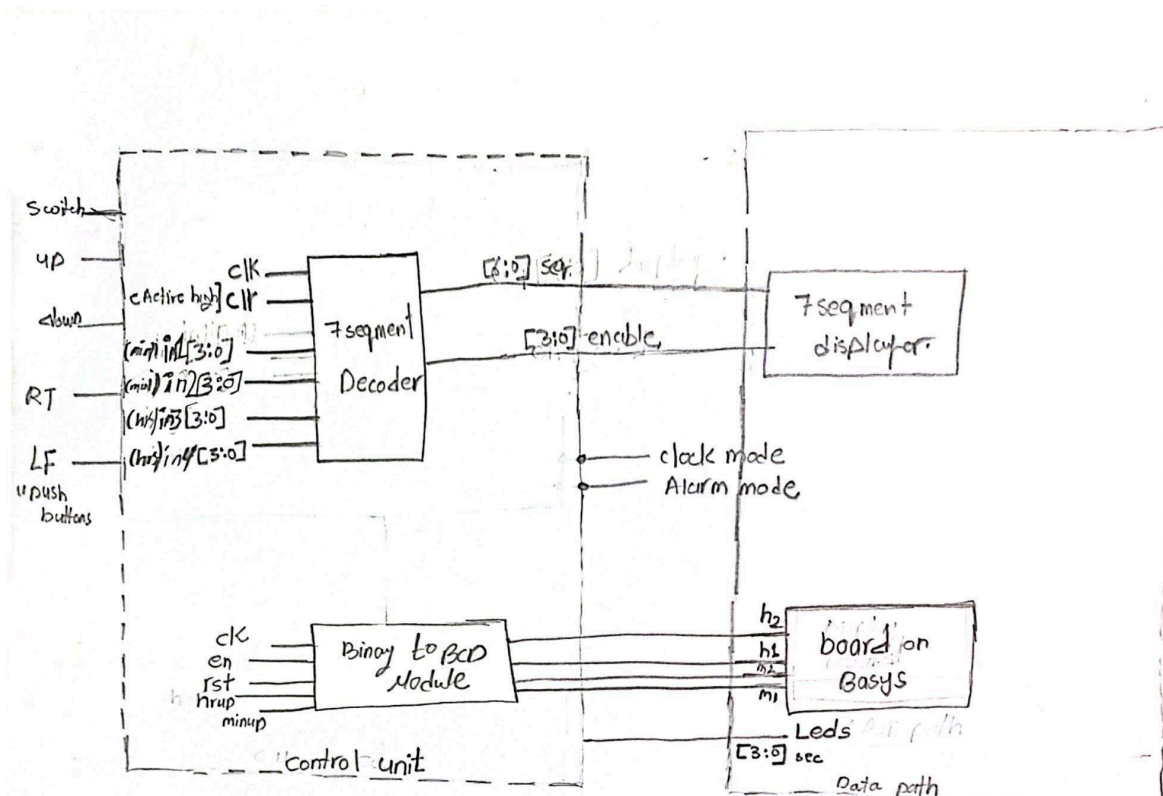 Switch
up
down
RT
LF
4 push
buttons
clk
[Active high] clr
(min) in1[3:0]
(min) in2[3:0]
(hrs) in3[3:0]
(hrs) in4[3:0]
7 segment
Decoder
[6:0] seg.
[3:0] enable
7 segment
displayer.
clock mode
Alarm mode
ck
en
rst
hrup
minup
Binay to BCD
Module
h2
h1
m2
m1
board on
Basys
Leds
[3:0] sec
"control unit
Data path